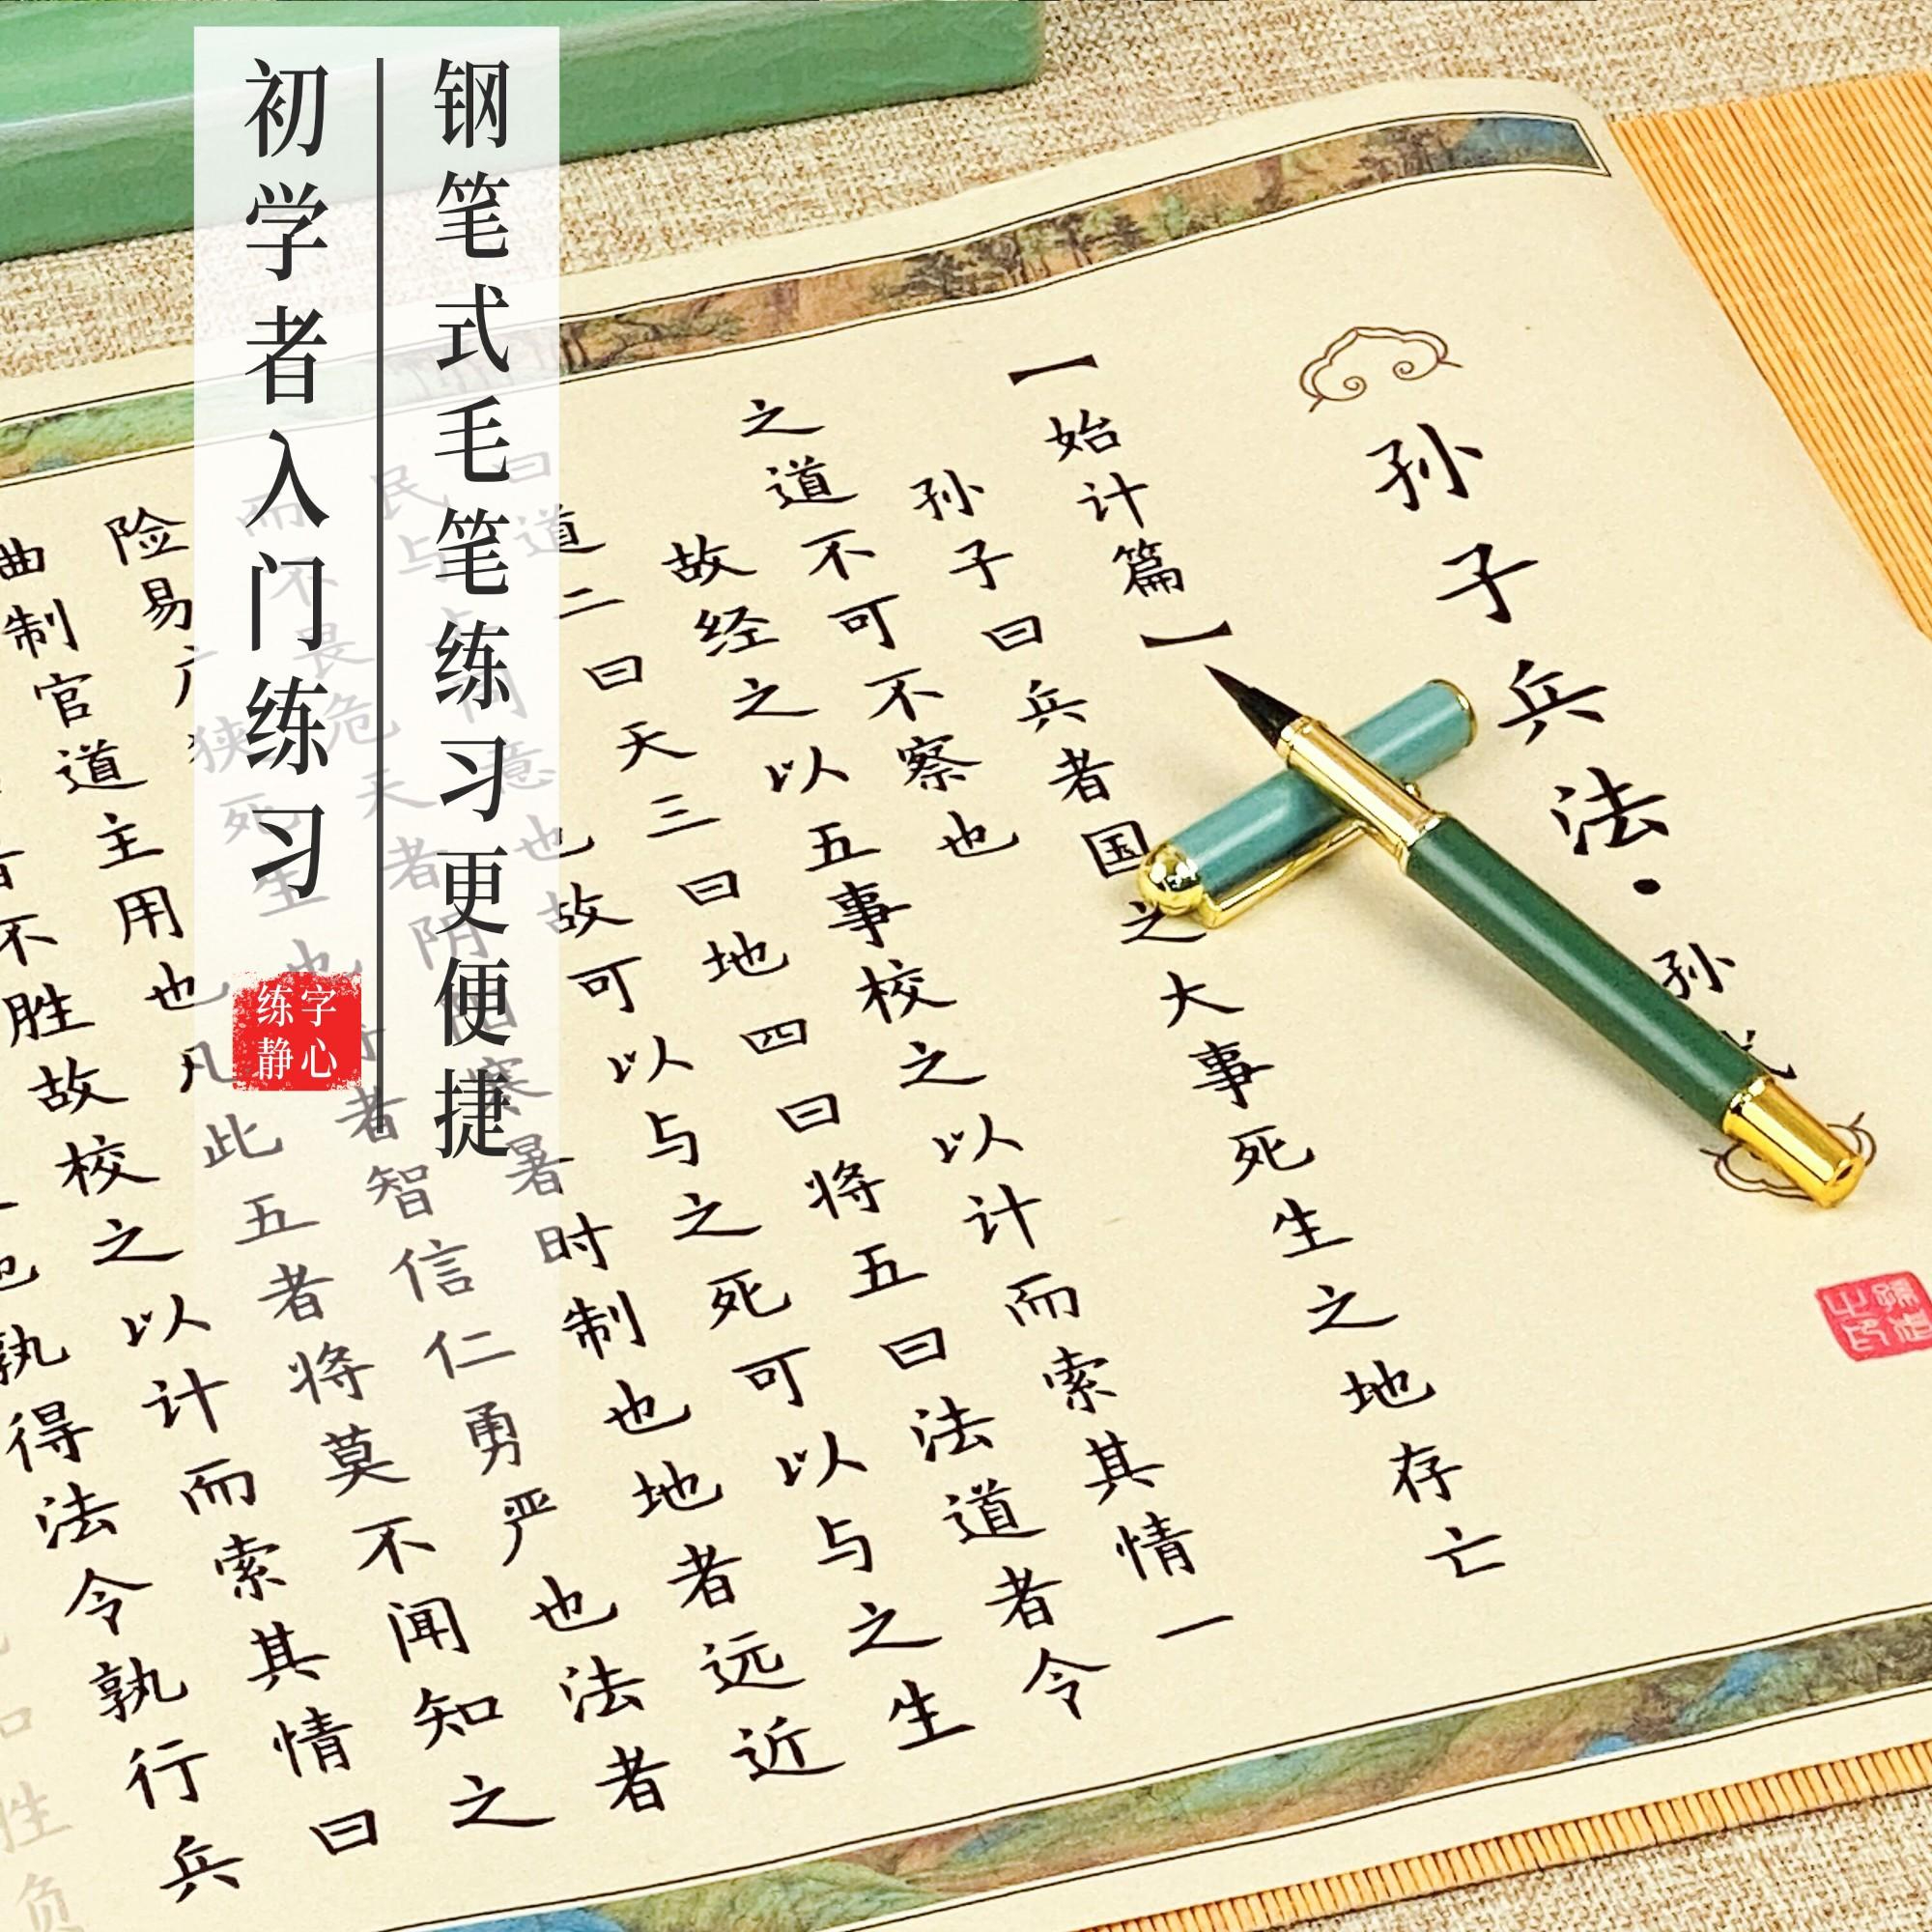 钢笔式毛笔练习更便捷
初学者入门练习
练字
静心
孙子兵法·孙
【始计篇】
孙子曰兵者国之大事死生之地存亡
之道不可不察也
故经之以五事校之以计而索其情一
曰道二曰天三曰地四曰将五曰法道者令
民与上同意也故可以与之死可以与之生
而不畏危天者阴阳寒暑时制也地者远近
险易广狭死生也将者智信仁勇严也法者
曲制官道主用也凡此五者将莫不闻知之
者不胜故校之以计而索其情曰
孰得法令孰行兵